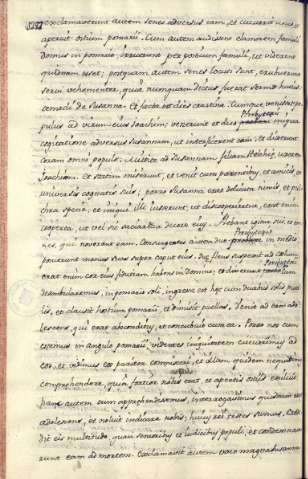 exclamaverunt autem senes adversus eam, et cucurrit unus
aperuit ostium pomarii. Cum autem audissent clamorem famuli
domus in pomario, irruerunt per posticum famuli, ut viderent
quidnam esset; postquam autem senes locuti sunt, erubuerunt
servi vehementer, quia nunquam dictus fuerat sermo hujus-
cemodi de Susanna. Et facta est dies crastina. Cumque venisset po-
pulus ad virum ejus Joachim, venerunt et duo Presbyteri iniqua
cogitatione adversus Susannam, ut interficerent eam, et dixerunt
coram omni populo: Mittite ad Susannam filiam Helchiæ, uxorem
Joachim. Et statim miserunt, et venit cum parentibus, et
universis cognatis suis; porro Susanna erat delicata nimis, et pul-
chra specie, et iniqui illi jusserunt, ut discooperiretur, erat enim
cooperta, ut vel sic satiarentur decore ejus. Flebant igitur sui, et om-
nes, qui noverant eam. Consurgentes autem duo Presbyteri in medio
posuerunt manus suas super caput ejus. Quæ flens suspexit ad cælum,
erat enim cor ejus fiduciam habens in Domino; et dixerunt Presbyteri: Cum
deambularemus in pomario soli, ingressa est hæc cum duabus puel-
lis, et clausit ostium pomarii, et dimisit puellas. Venit ad eam ado-
lescens, qui erat absconditus, et concubuit cum ea. Porro nos cum
essemus in angulo pomarii, videntes iniquitatem cucurrimus ad
eos, et vidimus eos pariter commisceri, et illum quidem nequivimus
comprehendere, quia fortior nobis erat, et apertis ostiis exilivit.
hanc autem cum apprehendissemus, interrogavimus quisnam esset
adolescens, et noluit indicare nobis; hujus rei testes sumus. Credi-
dit eis multitudo quasi senioribus et judicibus populi, et condemnave-
runt eam ad mortem. Exclamavit autem voce magna Susanna